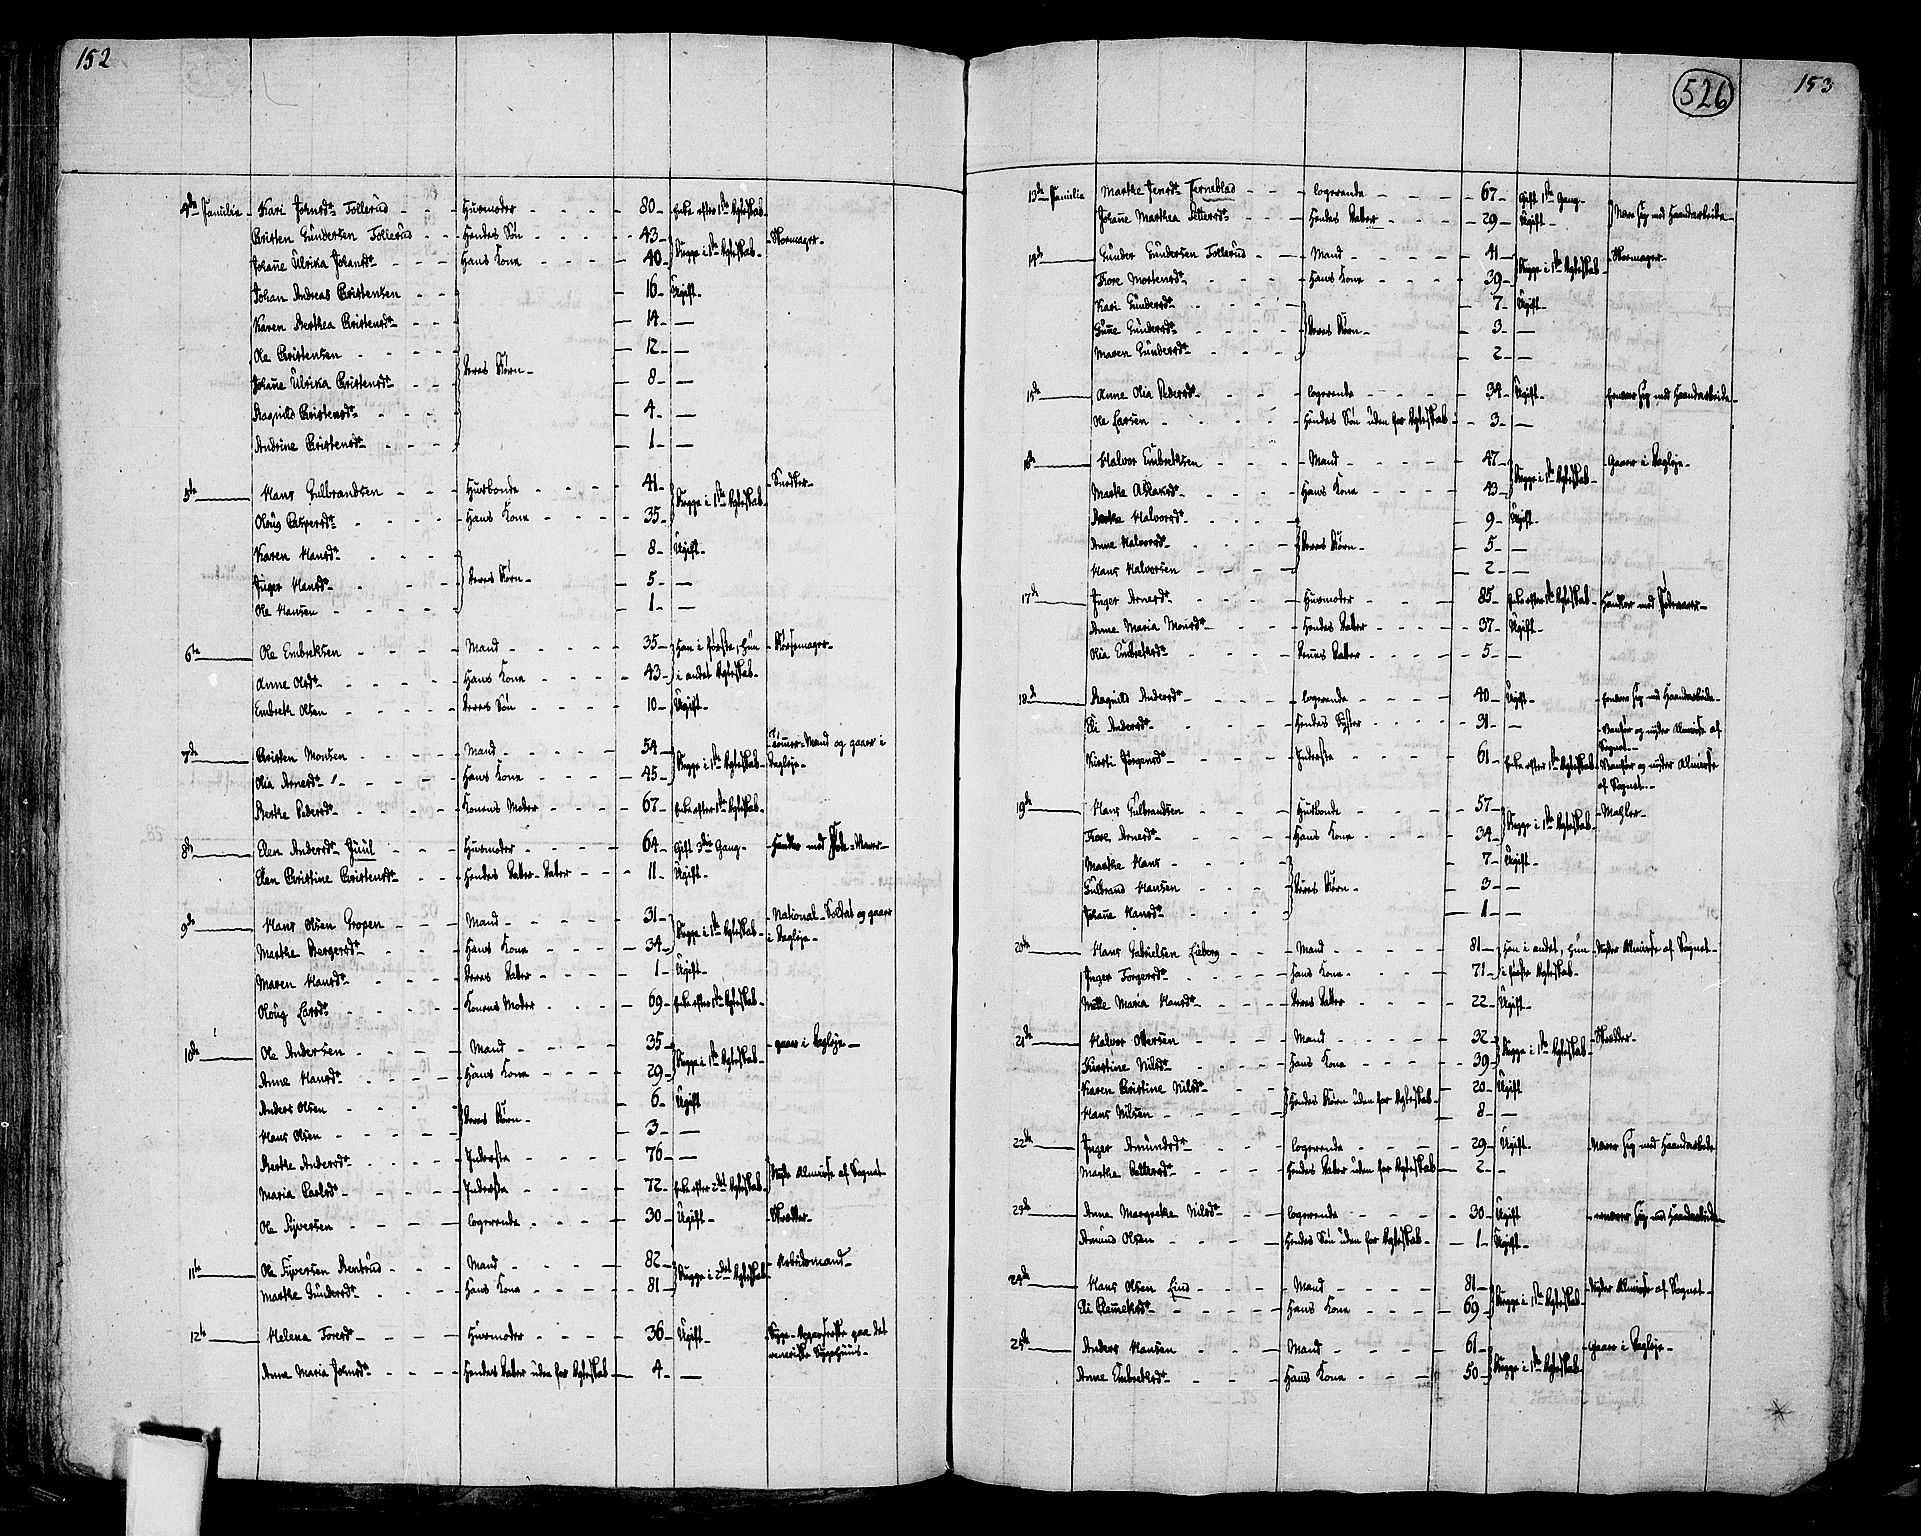 152
4de Familie - Kari Johnsdr Tollerud - - - Huusmoder - - - 80 - Enke efter 1ste Ægteskab -
Christen Gundersen Tollerud - - Hendes Søn - - - 43 - Begge i 1ste Ægteskab - Skomager -
Johañe Ulrika Johansdr - - - Hans Kone - - - 40 -
Johan Andreas Christensen - - Deres Børn - 16 - Ugift -
Karen Berthea Christensdr - - - 14 - —
Ole Christensen - - - - 12 - —
Johañe Ulrika Christensdr - - - 8 - —
Ragnild Christensdr - - - 4 - —
Andrine Christensdr - - - 1 - —
5te Hans Gulbrandsen - - - Huusbonde - - - 41 - Begge i 1ste Ægteskab - Snedker -
Oloug Caspersdr - - - Hans Kone - - - 35 -
Karen Hansdr - - - Deres Børn - 8 - Ugift -
Inger Hansdr - - - 5 - —
Ole Hansen - - - 1 - —
6te Ole Embretsen - - - Mand - - - 35 - Han i første, hun i andet Ægteskab - Bøssemager -
Anne Olsdr - - - Hans Kone - - - 43 -
Embret Olsen - - - Deres Søn - - - 10 - Ugift -
7de Christen Monsen - - - Mand - - - 54 - Begge i 1ste Ægteskab - Tømmer-Mand og gaaer i Dagleje -
Olia Arnesdr - - - Hans Kone - - - 45 -
Berthe Pedersdr - - - Konens Moder - - - 67 - Enke efter 1ste Ægteskab -
8de Elen Andersdr Juul - - Huusmoder - - - 64 - Gift 3die Gang - Handler med Føde-Varer -
Elen Christine Christensdr - - Hendes Datter-Datter - - 11 - Ugift -
9de Hans Olsen Gropen - - Mand - - - 31 - Begge i 1ste Ægteskab - National-Soldat og gaaer i Dagleje -
Marthe Bergersdr - - - Hans Kone - - - 34 -
Maren Hansdr - - - Deres Datter - - - 1 - Ugift -
Oloug Larsdr - - - Konens Moder - - - 69 - Enke efter 1ste Ægteskab -
10de Ole Andersen - - - Mand - - - 35 - Begge i 1ste Ægteskab - gaaer i Dagleje -
Anne Hansdr - - - Hans Kone - - - 29 -
Anders Olsen - - - Deres Børn - 6 - Ugift
Hans Olsen - - - 3 - —
Berthe Andersdr - - - Inderste - - - 76 - — Nyder Almisse af Sognet -
Maria Paulsdr - - - Inderste - - - 72 - Enke efter 2det Ægteskab -
Ole Syversen - - - Logerende - - - 30 - Ugift - Skrædder -
11te Ole Syversen Brenrud - - Mand - - - 82 - Begge i 2det Ægteskab - Arbeidsmand -
Marthe Gundersdr - - - Hans Kone - - - 81 -
12te Helena Toresdr - - - Huusmoder - - - 36 - Ugift - Syge-Opvarterske paa det veneriske Sygehuus -
Anne Maria Johnsdr - - - Hendes Datter uden for Ægteskab - 4 - —
526
153
13de Familie Marthe Jensdr Terneblad - - Logerende - - - 67 - Gift 1ste Gang - Nærer sig med Haandarbeide -
Johañe Marthea Pettersdr - - - Hendes Datter - - - 29 - Ugift -
14de Gunder Gundersen Tollerud - - Mand - - - 41 - Begge i 1ste Ægteskab - Skomager -
Thore Mortensdr - - - Hans Kone - - - 39 -
Kari Gundersdr - - - Deres Børn - 7 - Ugift -
Guñe Gundersdr - - - 3 - —
Maren Gundersdr - - - 2 - —
15de Anne Olia Pedersdr - - - Logerende - - - 34 - Ugift - Ernærer sig med Haandarbeide -
Ole Larsen - - - Hendes Søn uden for Ægteskab - 3 - —
16de Halvor Embretsen - - - Mand - - - 47 - Begge i 1ste Ægteskab - Gaaer i Dagleje -
Marthe Aslaksdr - - - Hans Kone - - - 43 -
Berthe Halvorsdr - - - Deres Børn - 9 - Ugift -
Anne Halvorsdr - - - 5 - —
Hans Halvorsen - - - 2 - —
17de Inger Arnesdr - - - Huusmoder - - - 85 - Enke efter 1ste Ægteskab - Handler med Fødevarer -
Anne Maria Monsdr - - - Hendes Datter - - - 37 - Ugift -
Olia Embretsdr - - - Dennes Datter - - - 5 - —
18de Ragnild Andersdr - - - Logerende - - - 40 - Ugift - Ernærer sig med Haandarbeide -
Eli Andersdr - - - Hendes Syster - - - 31 - — Vanfør og nyder Almisse af Sognet -
Kirsti Jørgensdr - - - Inderste - - - 61 - Enke efter 1ste Ægteskab - Vanfør og nyder Almisse af Sognet -
19de Hans Gulbrandsen - - - Huusbonde - - - 57 - Begge i 1ste Ægteskab - Mahler -
Thore Arnesdr - - - Hans Kone - - - 34 -
Marthe Hans - - - Deres Børn - 7 - Ugift -
Gulbrand Hansen - - - 3 - —
Johañe Hansdr - - - 1 - —
20de Hans Gabrielsen Lieborg - - Mand - - - 81 - Han i andet, hun i første Ægteskab - Nyder Almisse af Sognet -
Inger Torgersdr - - - Hans Kone - - - 71 -
Mette Maria Hansdr - - - Deres Datter - - - 22 - Ugift -
21de Halvor Ottersen - - - Mand - - - 32 - Begge i 1ste Ægteskab - Skrædder -
Kirstine Nilsdr - - - Hans Kone - - - 39 -
Karen Christine Nilsdr - - - Hendes Børn uden for Ægteskab - 20 - Ugift
Hans Nilsen - - - 8 - —
22de Inger Amundsdr - - - Logerende - - - 29 - Ugift - Nærer sig med Haandarbeide
Marthe Pettersdr - - - Hendes Datter uden for Ægteskab - 2 - -
23de Anne Margrethe Nilsdr - - Logerende - - - 30 - Ugift - ernærer sig med Haandarbeide
Amund Olsen - - - Hendes Søn uden for Ægteskab - 1 - Ugift -
24de Hans Olsen Lind - - - Mand - - - 81 - Begge i 1ste Ægteskab - Nyder Almisse af Sognet -
Eli Clemetsdr - - - Hans Kone - - - 69 -
25de Anders Hansen - - - Mand - - - 61 - Begge i 1ste Ægteskab - Gaaer i Dagleje -
Anne Embretsdr - - - Hans Kone - - - 50 -